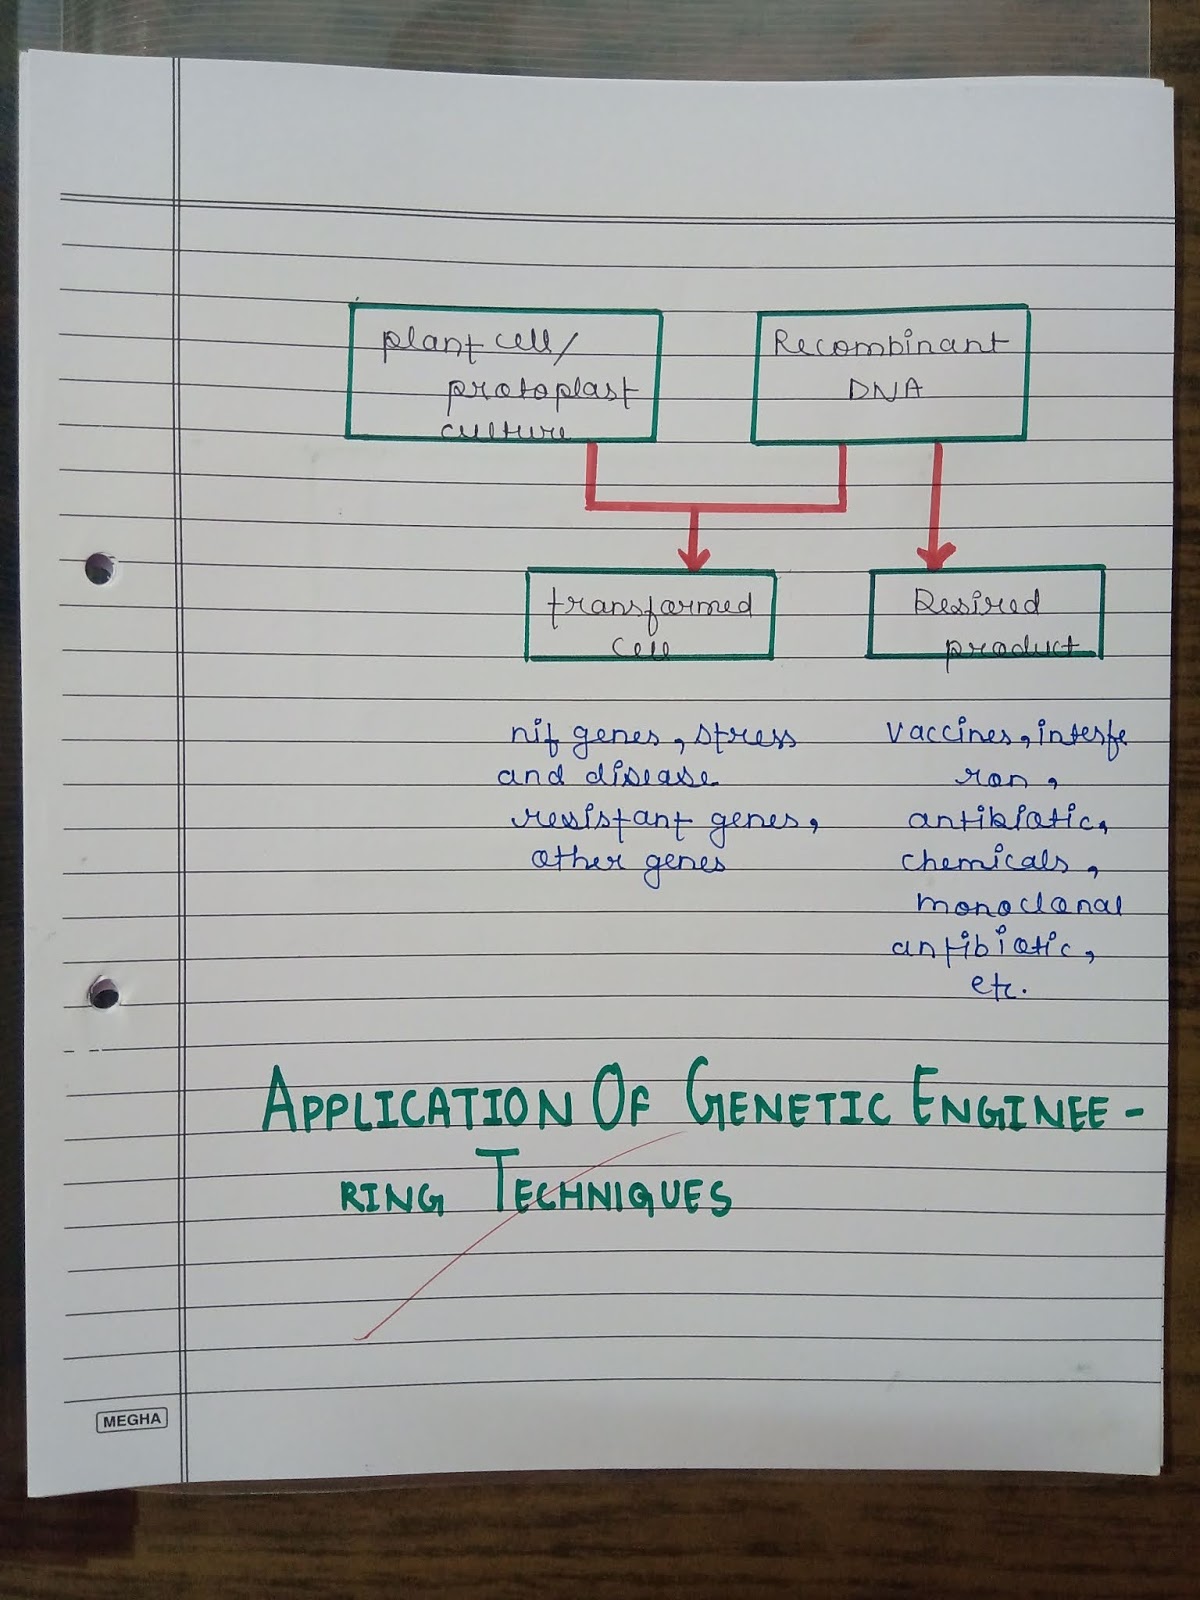 plant cell/
protoplast
culture
Recombinant
DNA
transformed
cell
Desired
product
nif genes, stress
and disease
resistant genes,
other genes
Vaccines, interfe
ron,
antibiotic,
chemicals,
monoclonal
antibiotic,
etc.
APPLICATION OF GENETIC ENGINEE-
RING TECHNIQUES
MEGHA